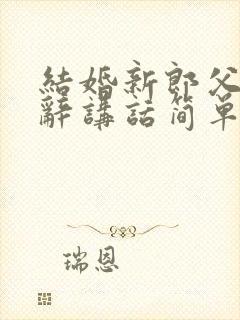 結婚新郎父
辭講話简单
瑞恩